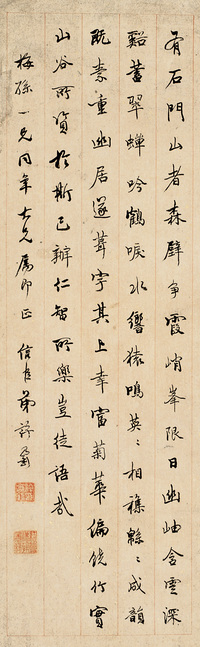 有石門山者森壁爭霞峭峯限日幽岫含雲深
谿蓄翠蟬吟鶴唳水響猿鳴英〻相雜緜〻成韻
既素重幽居遂葺宇其上幸富菊華偏饒竹實
山谷所資於斯已辦仁智所樂豈徒語哉
梅孫一兄同年大兄属即正 信臣弟許